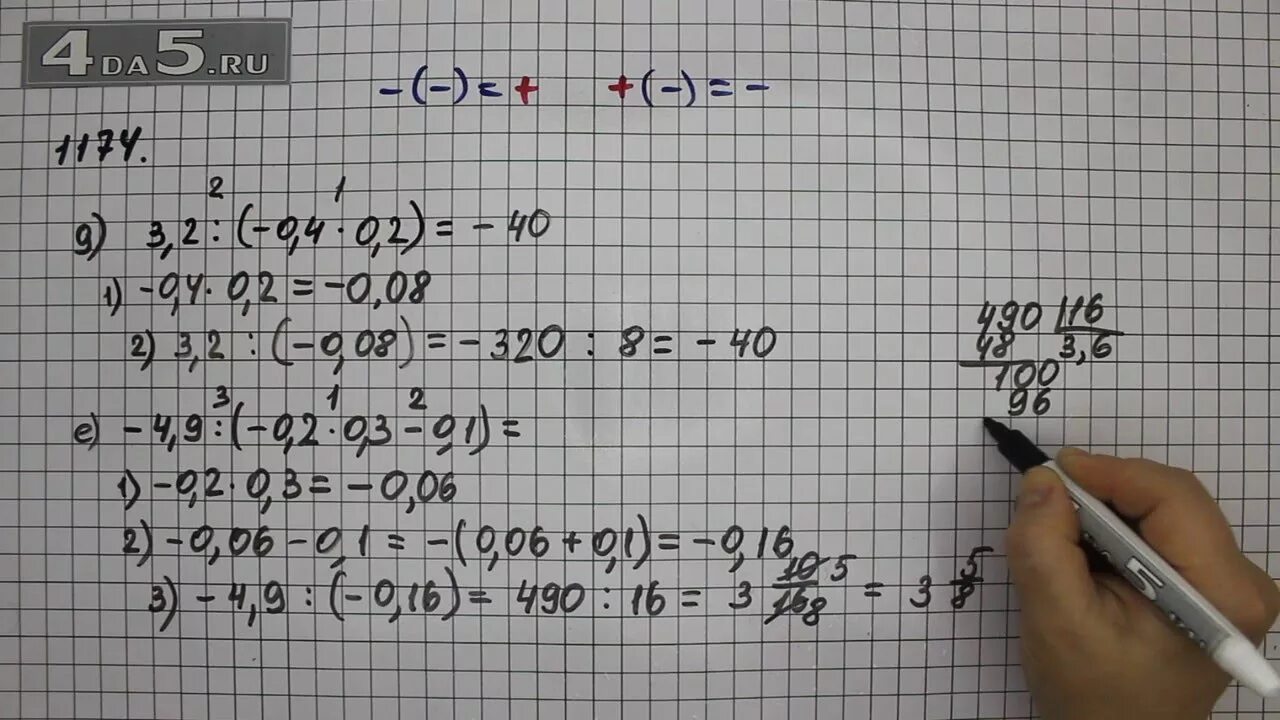 4DA5.RU
-(-)=+ +(-)=-
1174.
2 1
g) 3,2:(-0,4·0,2)=-40
1) -0,4·0,2=-0,08
2) 3,2:(-0,08)=-320:8=-40
3 1 2
e) -4,9:(-0,2·0,3-0,1)=
1) -0,2·0,3=-0,06
2) -0,06-0,1=-(0,06+0,1)=-0,16
3) -4,9:(-0,16)=490:16=3 10/16 5/8=3 5/8
490 16
48 3,6
100
96
5